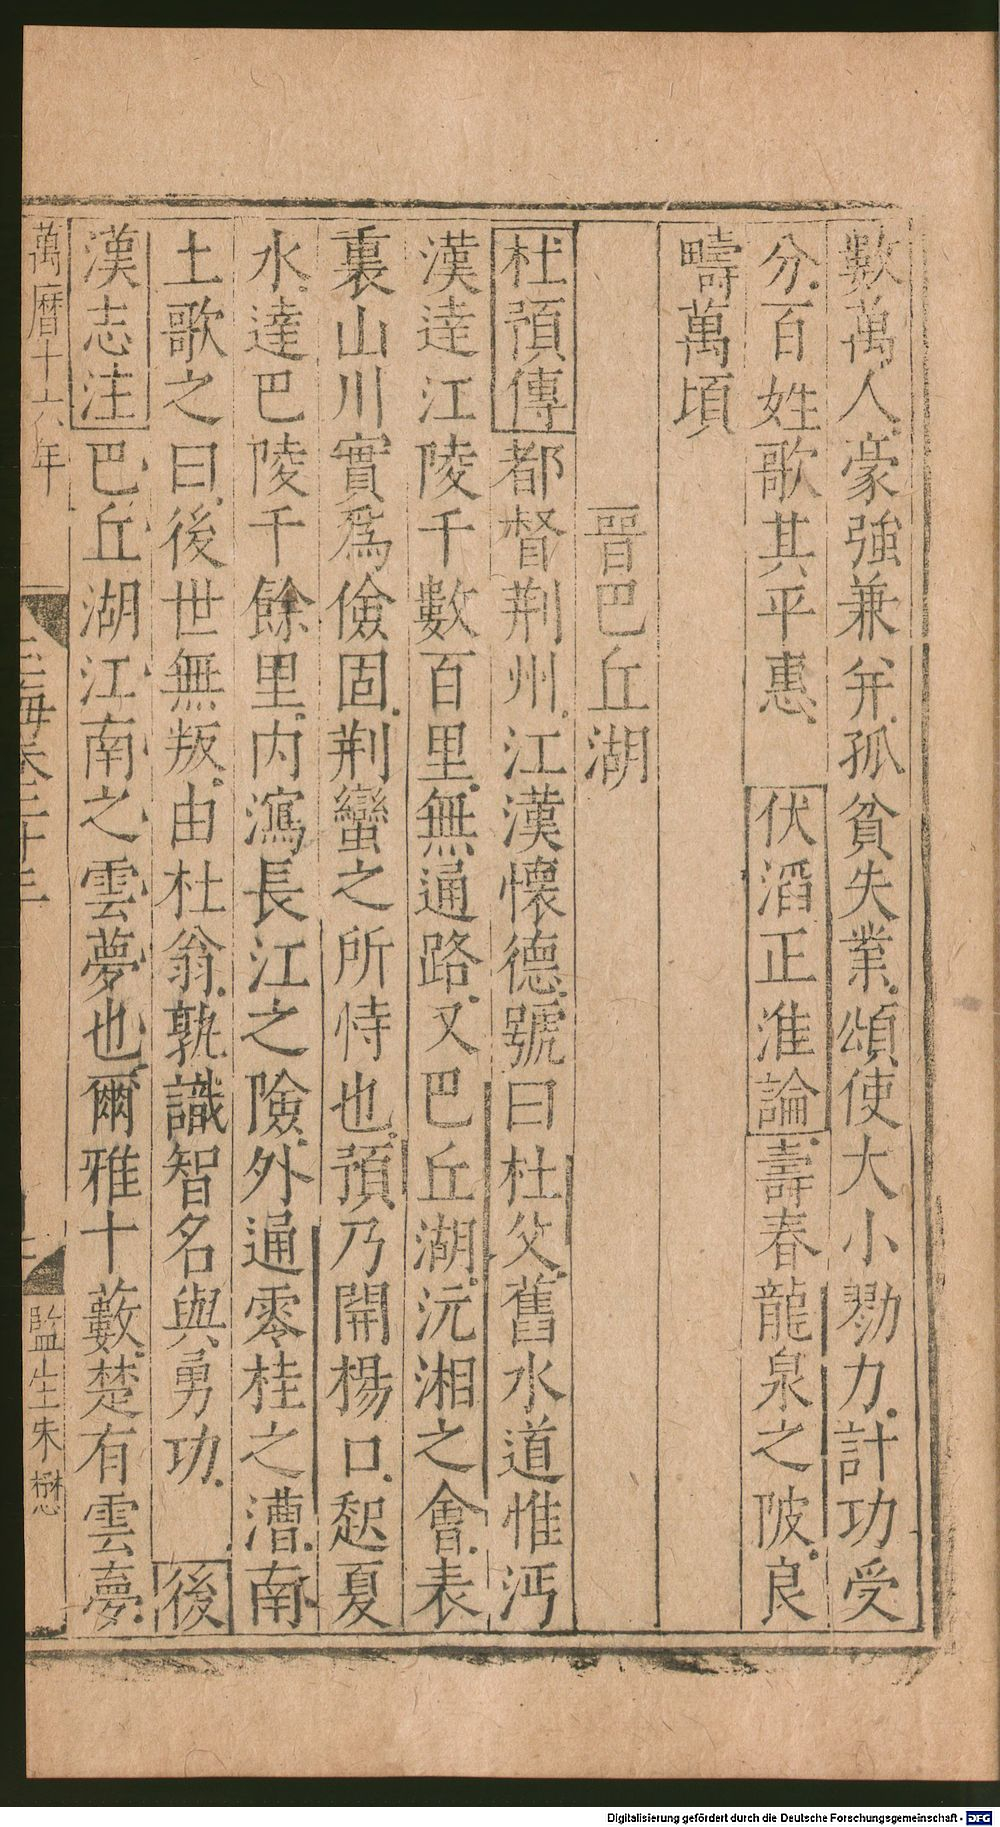 數萬人豪強兼并孤貧失業頌使大小勠力計功受
分百姓歌其平惠 伏滔正淮論壽春龍泉之陂良
疇萬頃
晉巴丘湖
杜預傳都督荆州江漢懷德號曰杜父舊水道惟沔
漢達江陵千數百里無通路又巴丘湖沅湘之會表
裏山川實爲儉固荆蠻之所恃也預乃開楊口起夏
水達巴陵千餘里内瀉長江之險外通零桂之漕南
土歌之曰後世無叛由杜翁孰識智名與勇功 後
漢志注巴丘湖江南之雲夢也爾雅十藪楚有雲夢
萬曆十六年
玉海卷二十三
監生朱懋
Digitalisierung gefördert durch die Deutsche Forschungsgemeinschaft - DFG